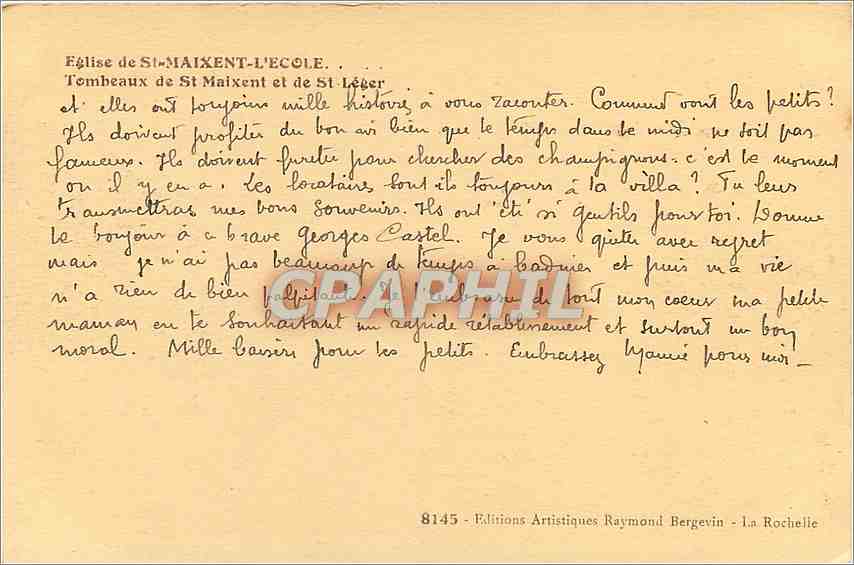 Eglise de St-MAIXENT-L'ECOLE. . . .
Tombeaux de St Maixent et de St Léger
et elles ont toujours mille histoires à vous raconter. Comment vont les petits?
Ils doivent profiter du bon air bien que le temps dans le midi ne soit pas
fameux. Ils doivent fureter pour chercher des champignons. c'est le moment
où il y en a. Les locataires sont ils toujours à la villa? Tu leur
transmettras mes bons souvenirs. Ils ont été si gentils pour toi. Donne
le bonjour à ce brave Georges Castel. Je vous quitte avec regret
mais je n'ai pas beaucoup de temps à badiner et puis ma vie
n'a rien de bien palpitant. Je t'embrasse de tout mon coeur ma petite
maman en te souhaitant un rapide rétablissement et surtout un bon
moral. Mille baisers pour les petits. Embrassez Mamie pour moi_
CPAPHIL
8145 - Editions Artistiques Raymond Bergevin - La Rochelle